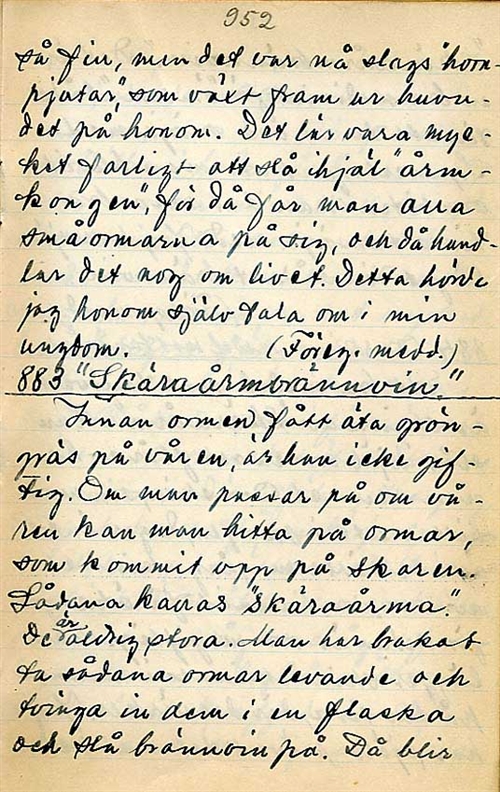 952
så fin, men det var nå slags "horn-
pjatar", som växt fram ur huvu-
det på honom. Det lär vara myc-
ket farligt att slå ihjäl "årm-
kongen", för då får man alla
små ormarna på sig, och då hand-
lar det nog om livet. Detta hörde
jag honom själv tala om i min
ungdom. (Föreg. medd.)
883 "Skáraårmbrännvin."
Innan ormen fått äta grön-
gräs på våren, är han icke gif-
tig. Om man passar på om vå-
ren kan man hitta på ormar,
som kommit upp på skaren.
Sådana kallas "Skáraårma".
De är aldrig stora. Man har brukat
ta sådana ormar levande och
tvinga in dem i en flaska
och slå brännvin på. Då blir